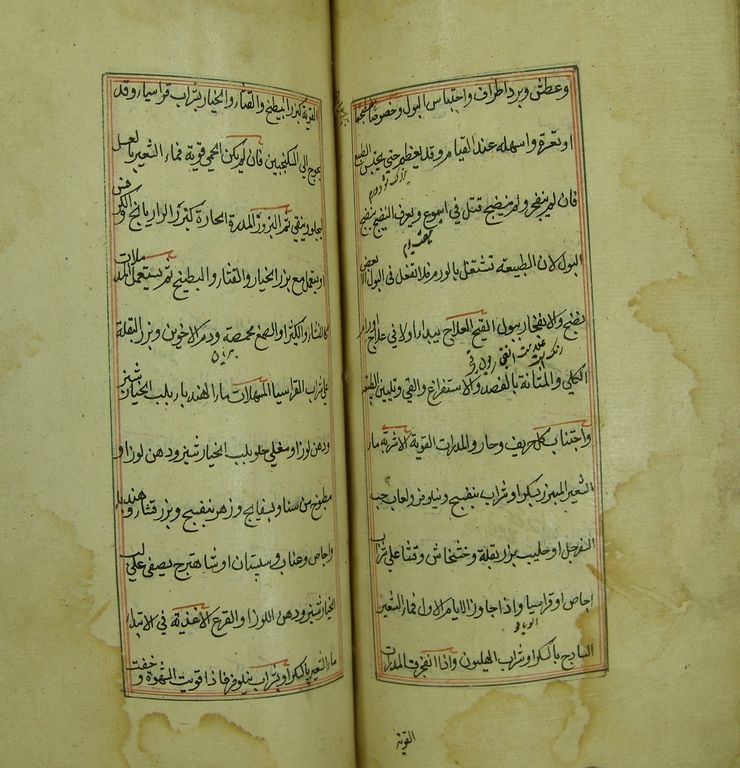 وعطش وبرد اطراف واحتباس البول وخصوصا
او تعرة واسهله عند القيام وقد يعظم حتى يحبس
فان لم ينفجر ولم ينضج قتل في اسبوع ويعرف النضج بنضج
البول لان الطبيعة تشتغل بالورم فلا تفعل في البول
بنضج والانفجار ببول القيح العلاج يبداء اولا في علاج اورام
الكلي والمثانة بالفصد والاستفراغ والقي وتليين الطبيعة
واجتناب كل حريف وحار والمدرات القوية الاشربة ماء
الشعير المبزر بسكر او شراب بنفسج ونيلوفر ولعاب حب
السفرجل او حليب بزر بقلة وخشخاش وقثا على شراب
اجاص او قراسيا واذا جاوز الايام الاول فماء الشعير
الساذج بالسكر او شراب الهليون واذا انفجر فالمدرات
القوية
القوية كبزر البطيخ والقثاء والخيار بشراب قراسيا وقد
يحوج الى السكنجبين فان لم يكن الحمى قوية فماء الشعير بالعسل
ليجلو وينقي ثم البزور المدرة الحارة كبزر الرازيانج والكرفس
او يستعمل مع بزر الخيار والقثاء والبطيخ ثم يستعمل
كالنشا والكثيرا والصمغ محمصة ودم الاخوين وبزر البقلة
على شراب القراسيا المسهلات ماء الهندبا بلب الخيار شنبر
ودهن لوز او مغلي حلو بلب الخيار شنبر ودهن لوز او
مطبوخ من سنا وبسفايج وزهر بنفسج وبزر قثاء وهندبا
واجاص وعناب وسبستان او شاهترج يصفى على لب
الخيار شنبر ودهن اللوز او القرع الاغذية في الابتداء
ماء الشعير بالسكر او بشراب نيلوفر فاذا قويت الشهوة وخفت